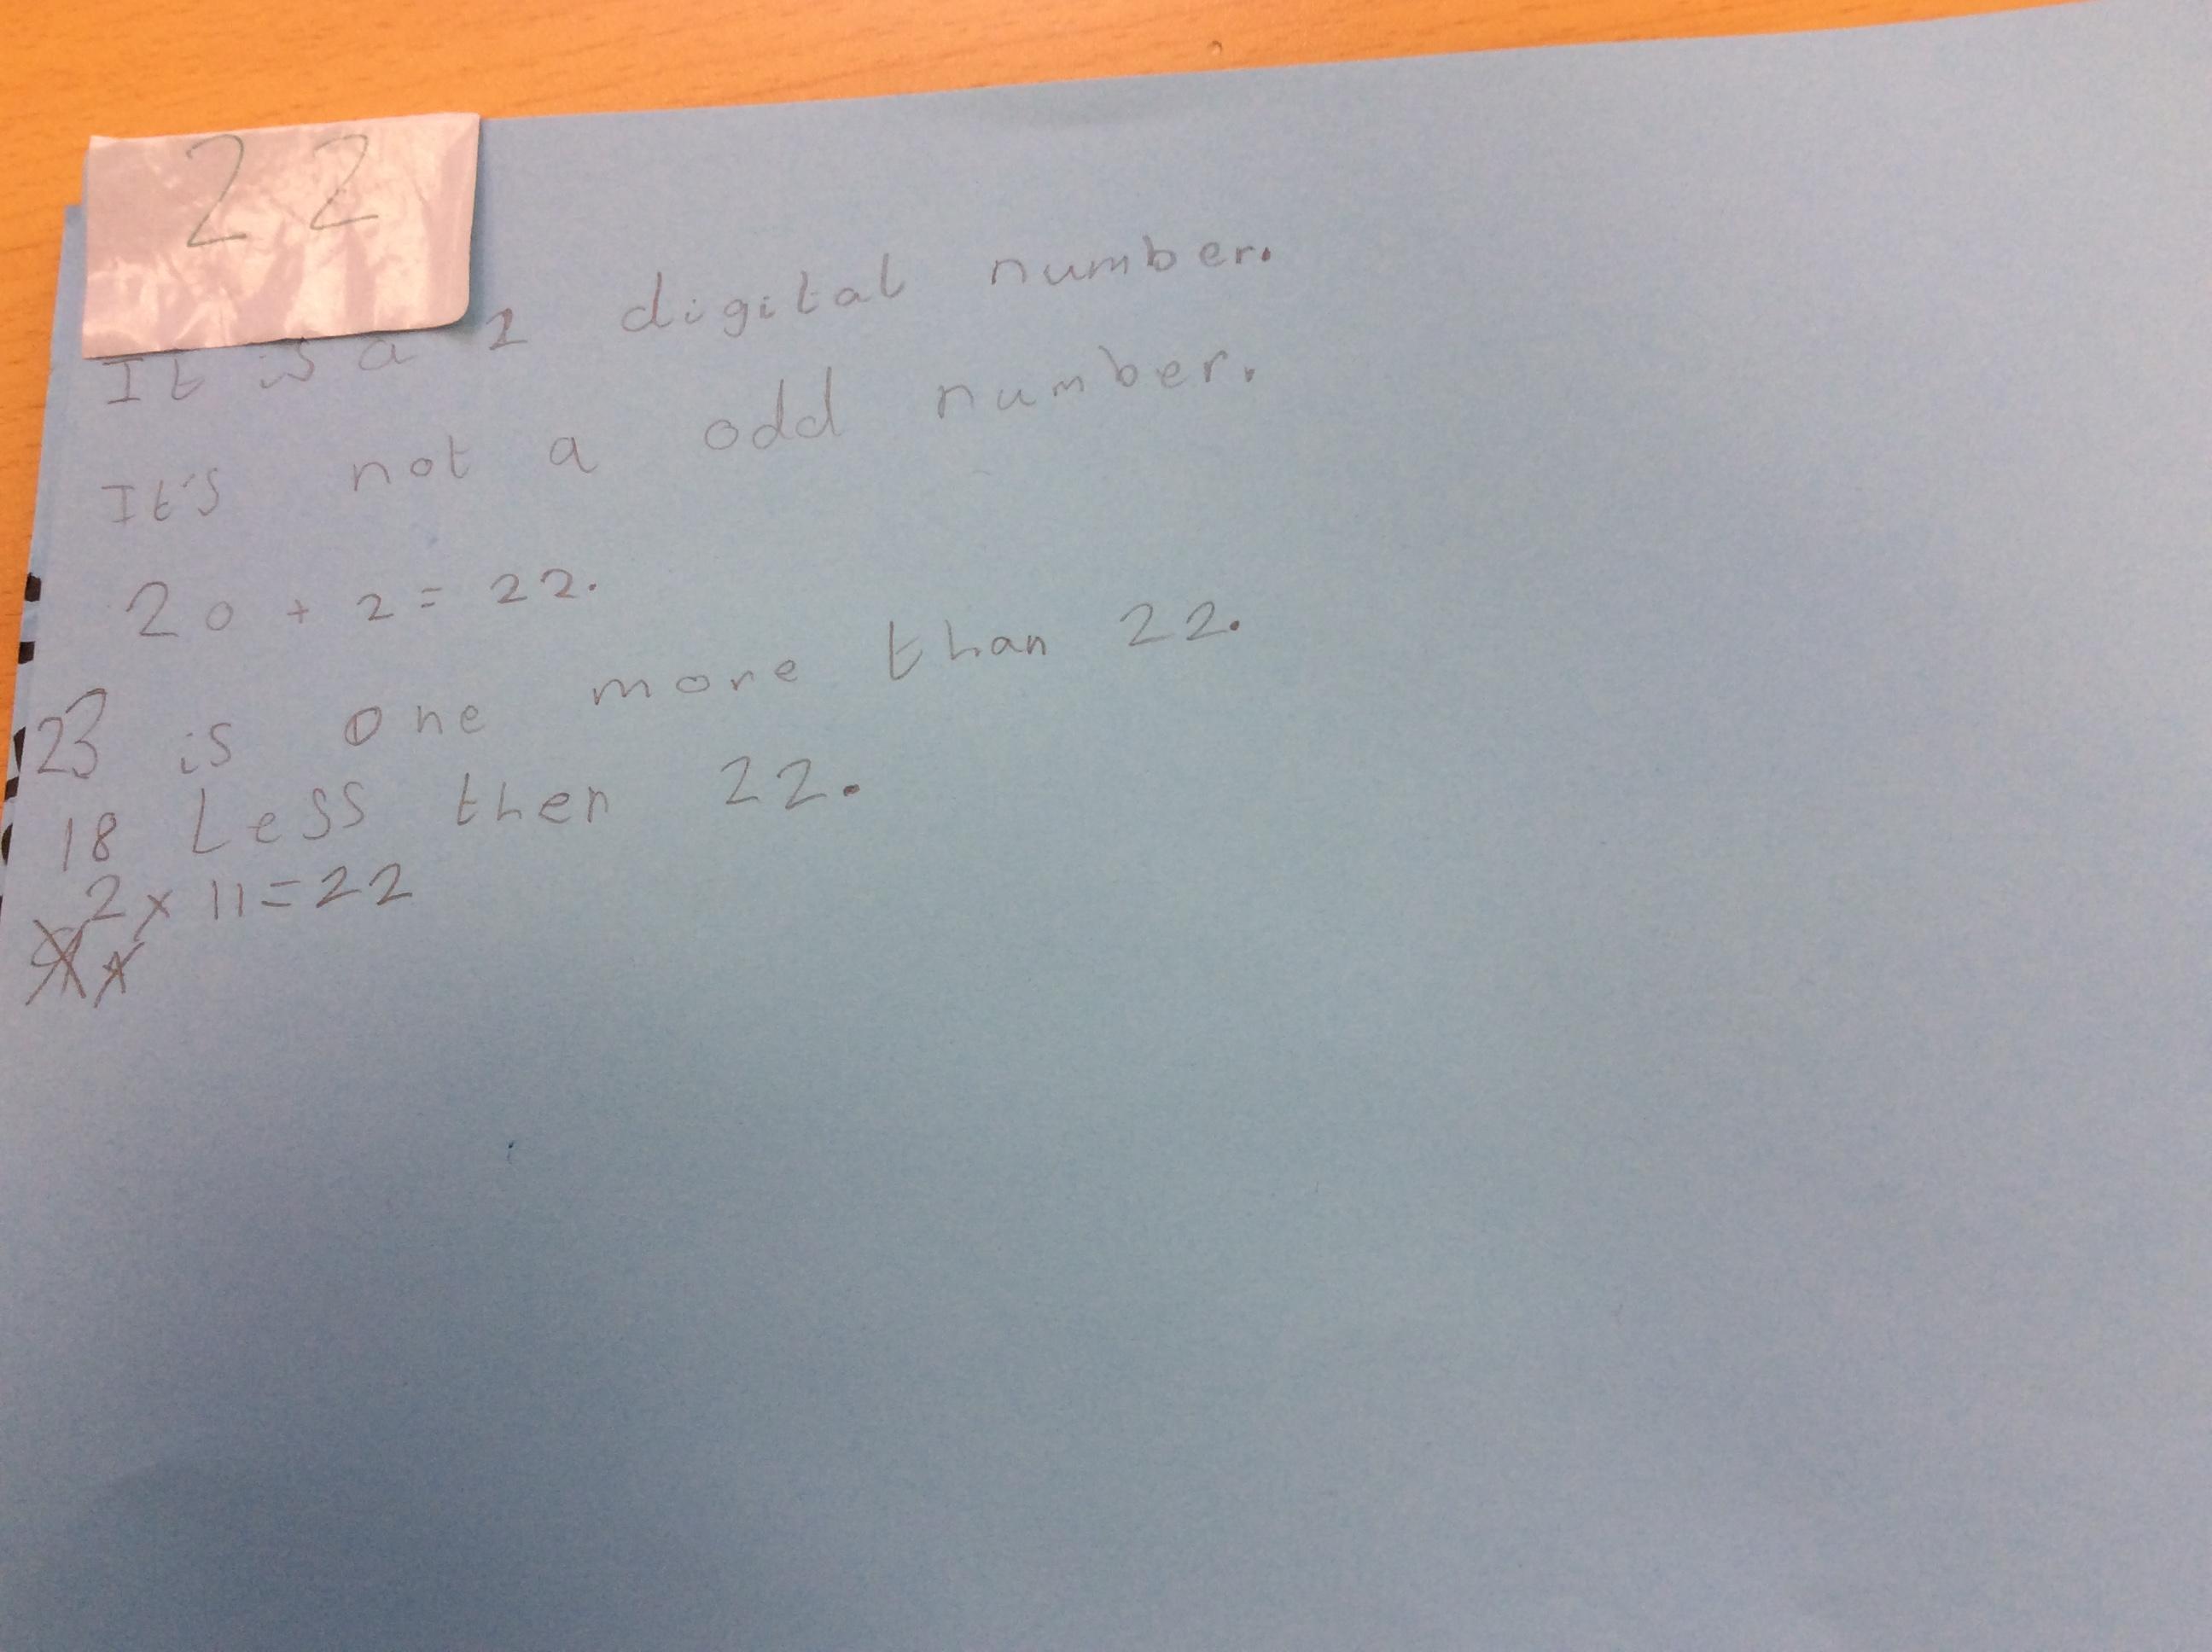 22
It is a 2 digital number.
It's not a odd number.
20 + 2 = 22.
23 is one more than 22.
18 Less then 22.
2 x 11 = 22